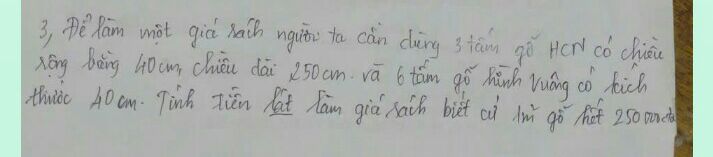 3, Để làm một giá sách người ta cần dùng 3 tấm gỗ HCN có chiều
rộng bằng 40cm, chiều dài 250cm. và 6 tấm gỗ hình vuông có kích
thước 40cm. Tính tiền làm giá sách biết cứ 1m gỗ hết 250 000đ